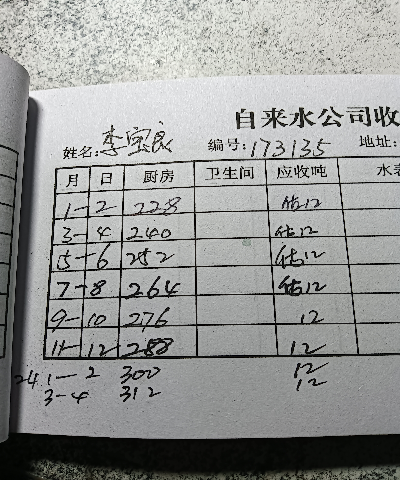 自来水公司收
姓名:李宝良 编号:173135 地址:
月 日 厨房 卫生间 应收吨 水表
1-2 228 估12
3-4 240 估12
5-6 252 估12
7-8 264 估12
9-10 276 12
11-12 288 12
24.1-2 300 12
3-4 312 12